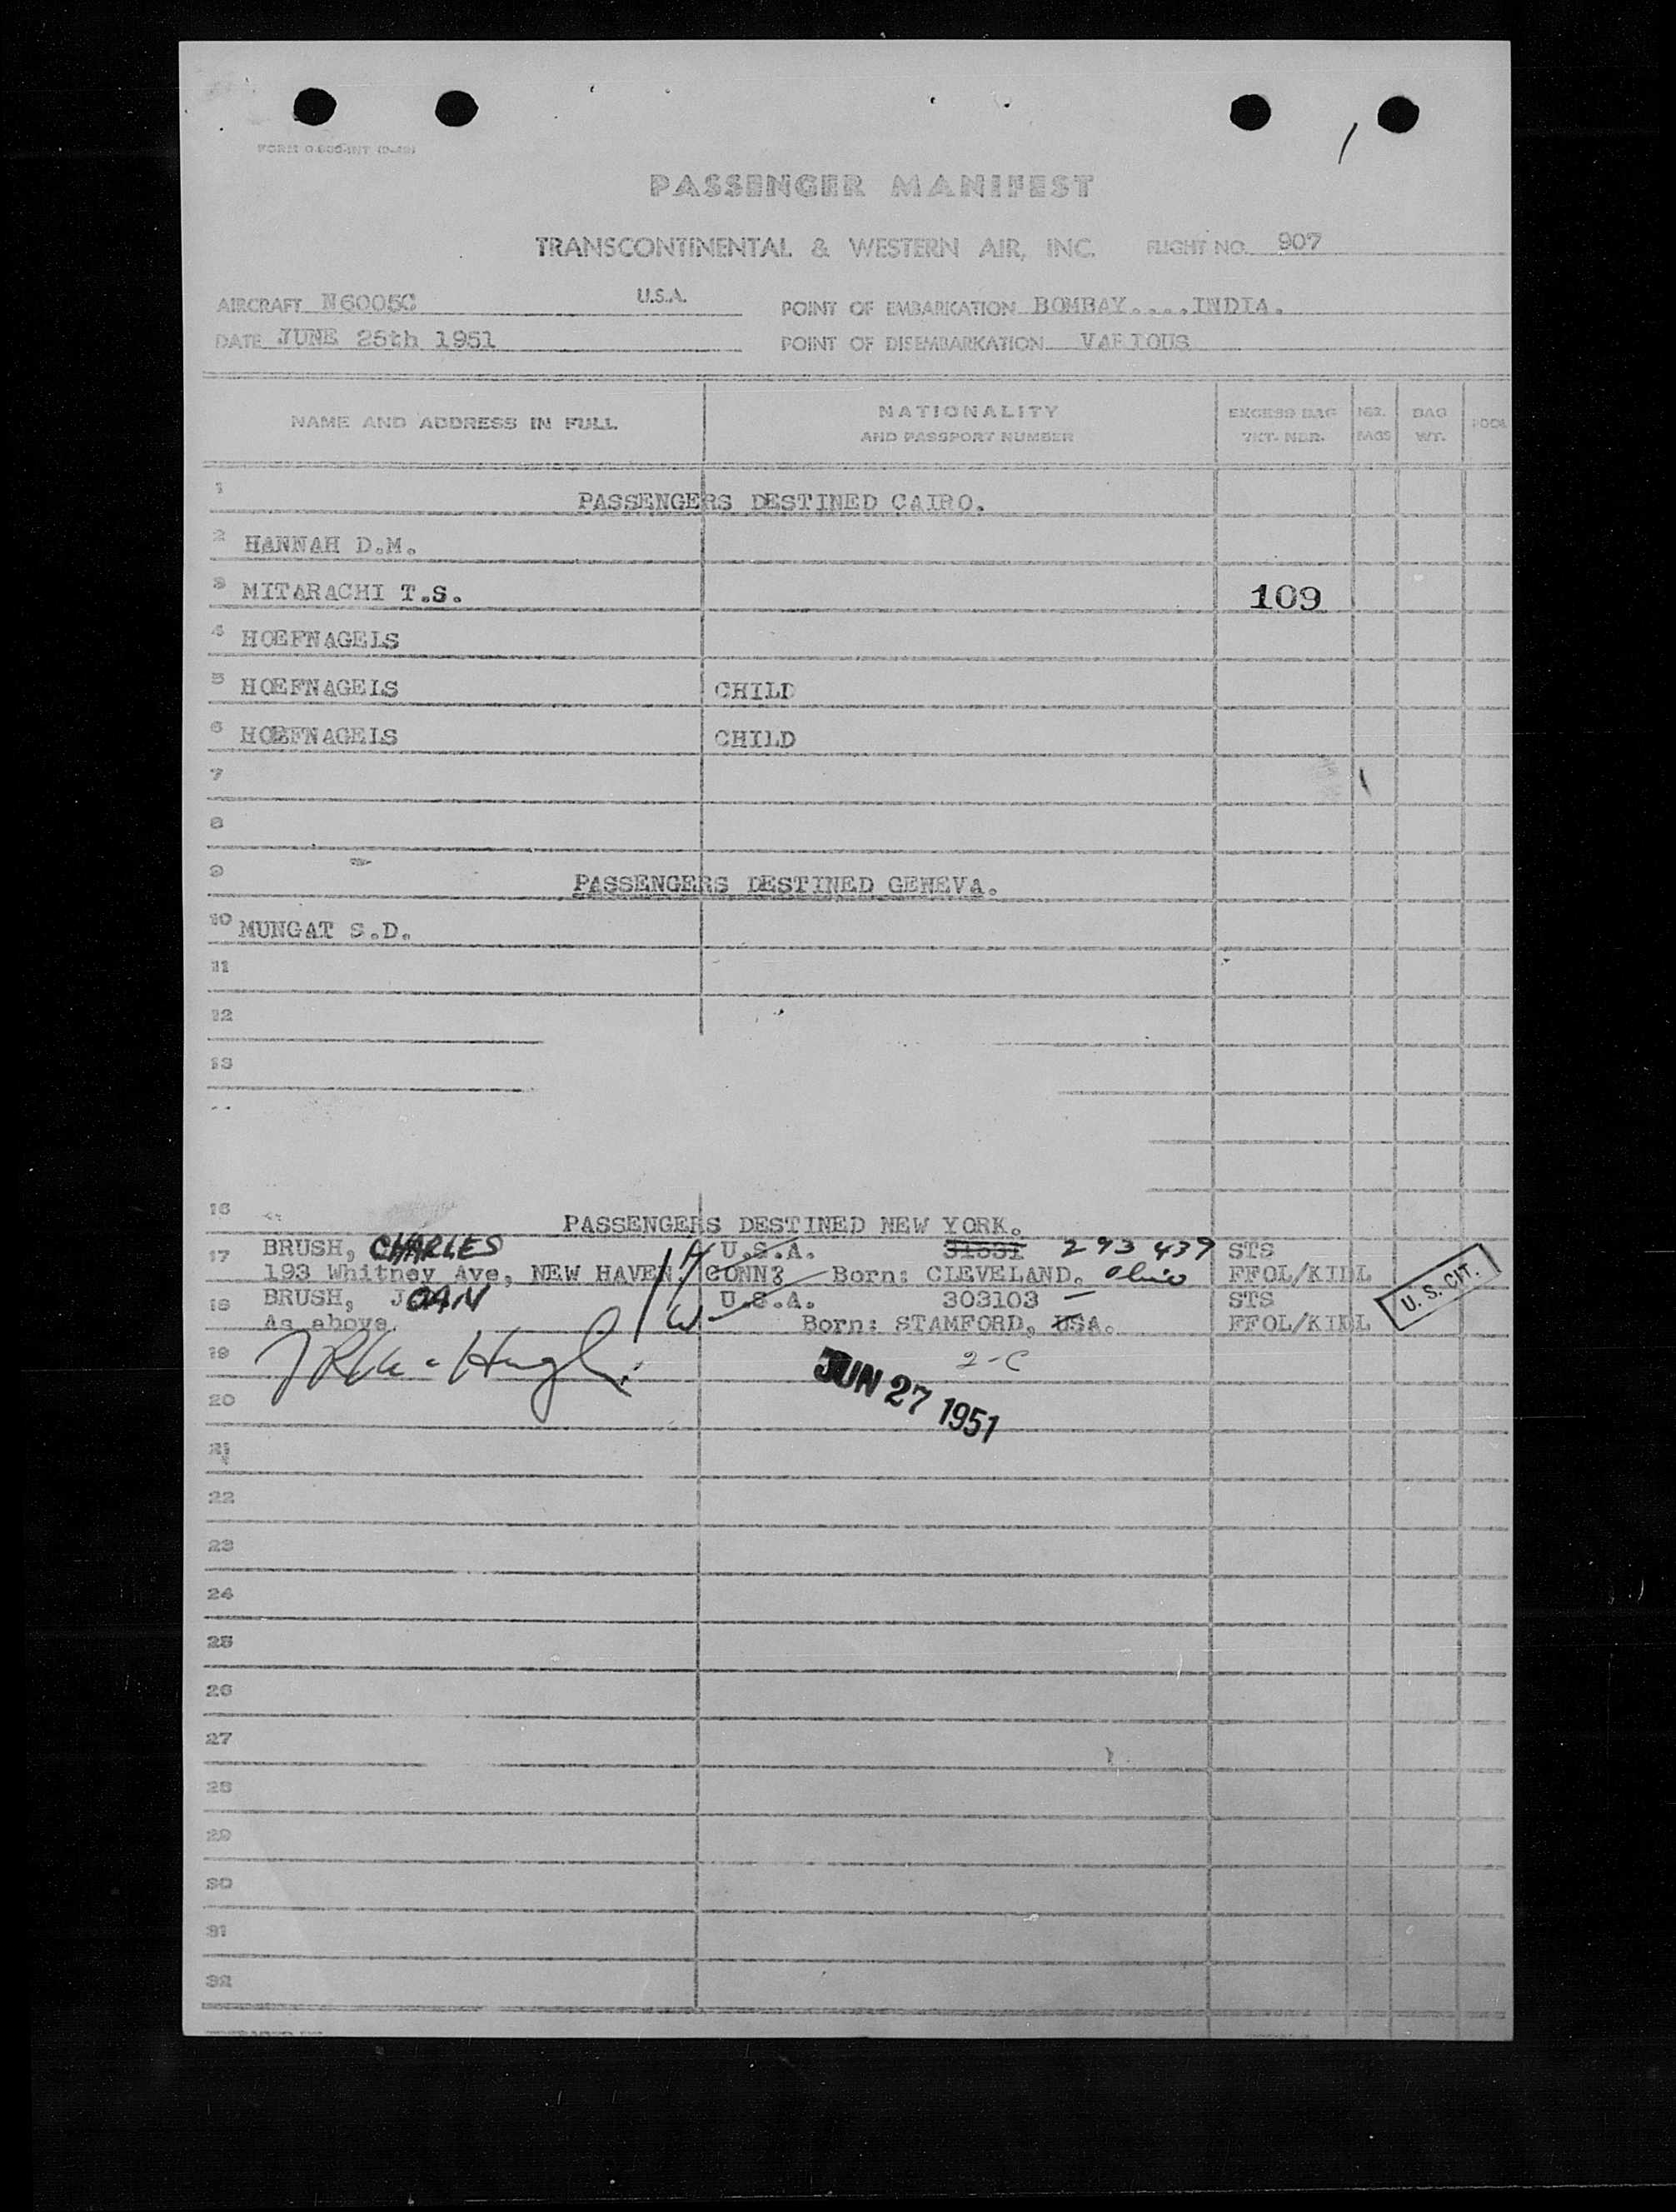 FORM O-805-INT
PASSENGER MANIFEST
TRANSCONTINENTAL & WESTERN AIR, INC. FLIGHT NO. 907
AIRCRAFT N6005C U.S.A. POINT OF EMBARKATION BOMBAY....INDIA.
DATE JUNE 25th 1951 POINT OF DISEMBARKATION VARIOUS
NAME AND ADDRESS IN FULL NATIONALITY AND PASSPORT NUMBER EXCESS BAG TKT. NBR. NBR. BAGS BAG WT.
1 PASSENGERS DESTINED CAIRO.
2 HANNAH D.M.
3 MITARACHI T.S. 109
4 HOEFNAGELS
5 HOEFNAGELS CHILD
6 HOEFNAGELS CHILD
7
8
9 PASSENGERS DESTINED GENEVA.
10 MUNGAT S.D.
11
12
13
16 PASSENGERS DESTINED NEW YORK.
17 BRUSH, CHARLES H U.S.A. 31531 293439 STS
193 Whitney Ave, NEW HAVEN. CONN; Born: CLEVELAND. Ohio FFOL/KIDL
18 BRUSH, JOAN W U.S.A. 303103 STS U. S. CIT.
As above. Born: STAMFORD, USA. FFOL/KIDL
19 2-C
JUN 27 1951
20
21
22
23
24
25
26
27
28
29
30
31
32